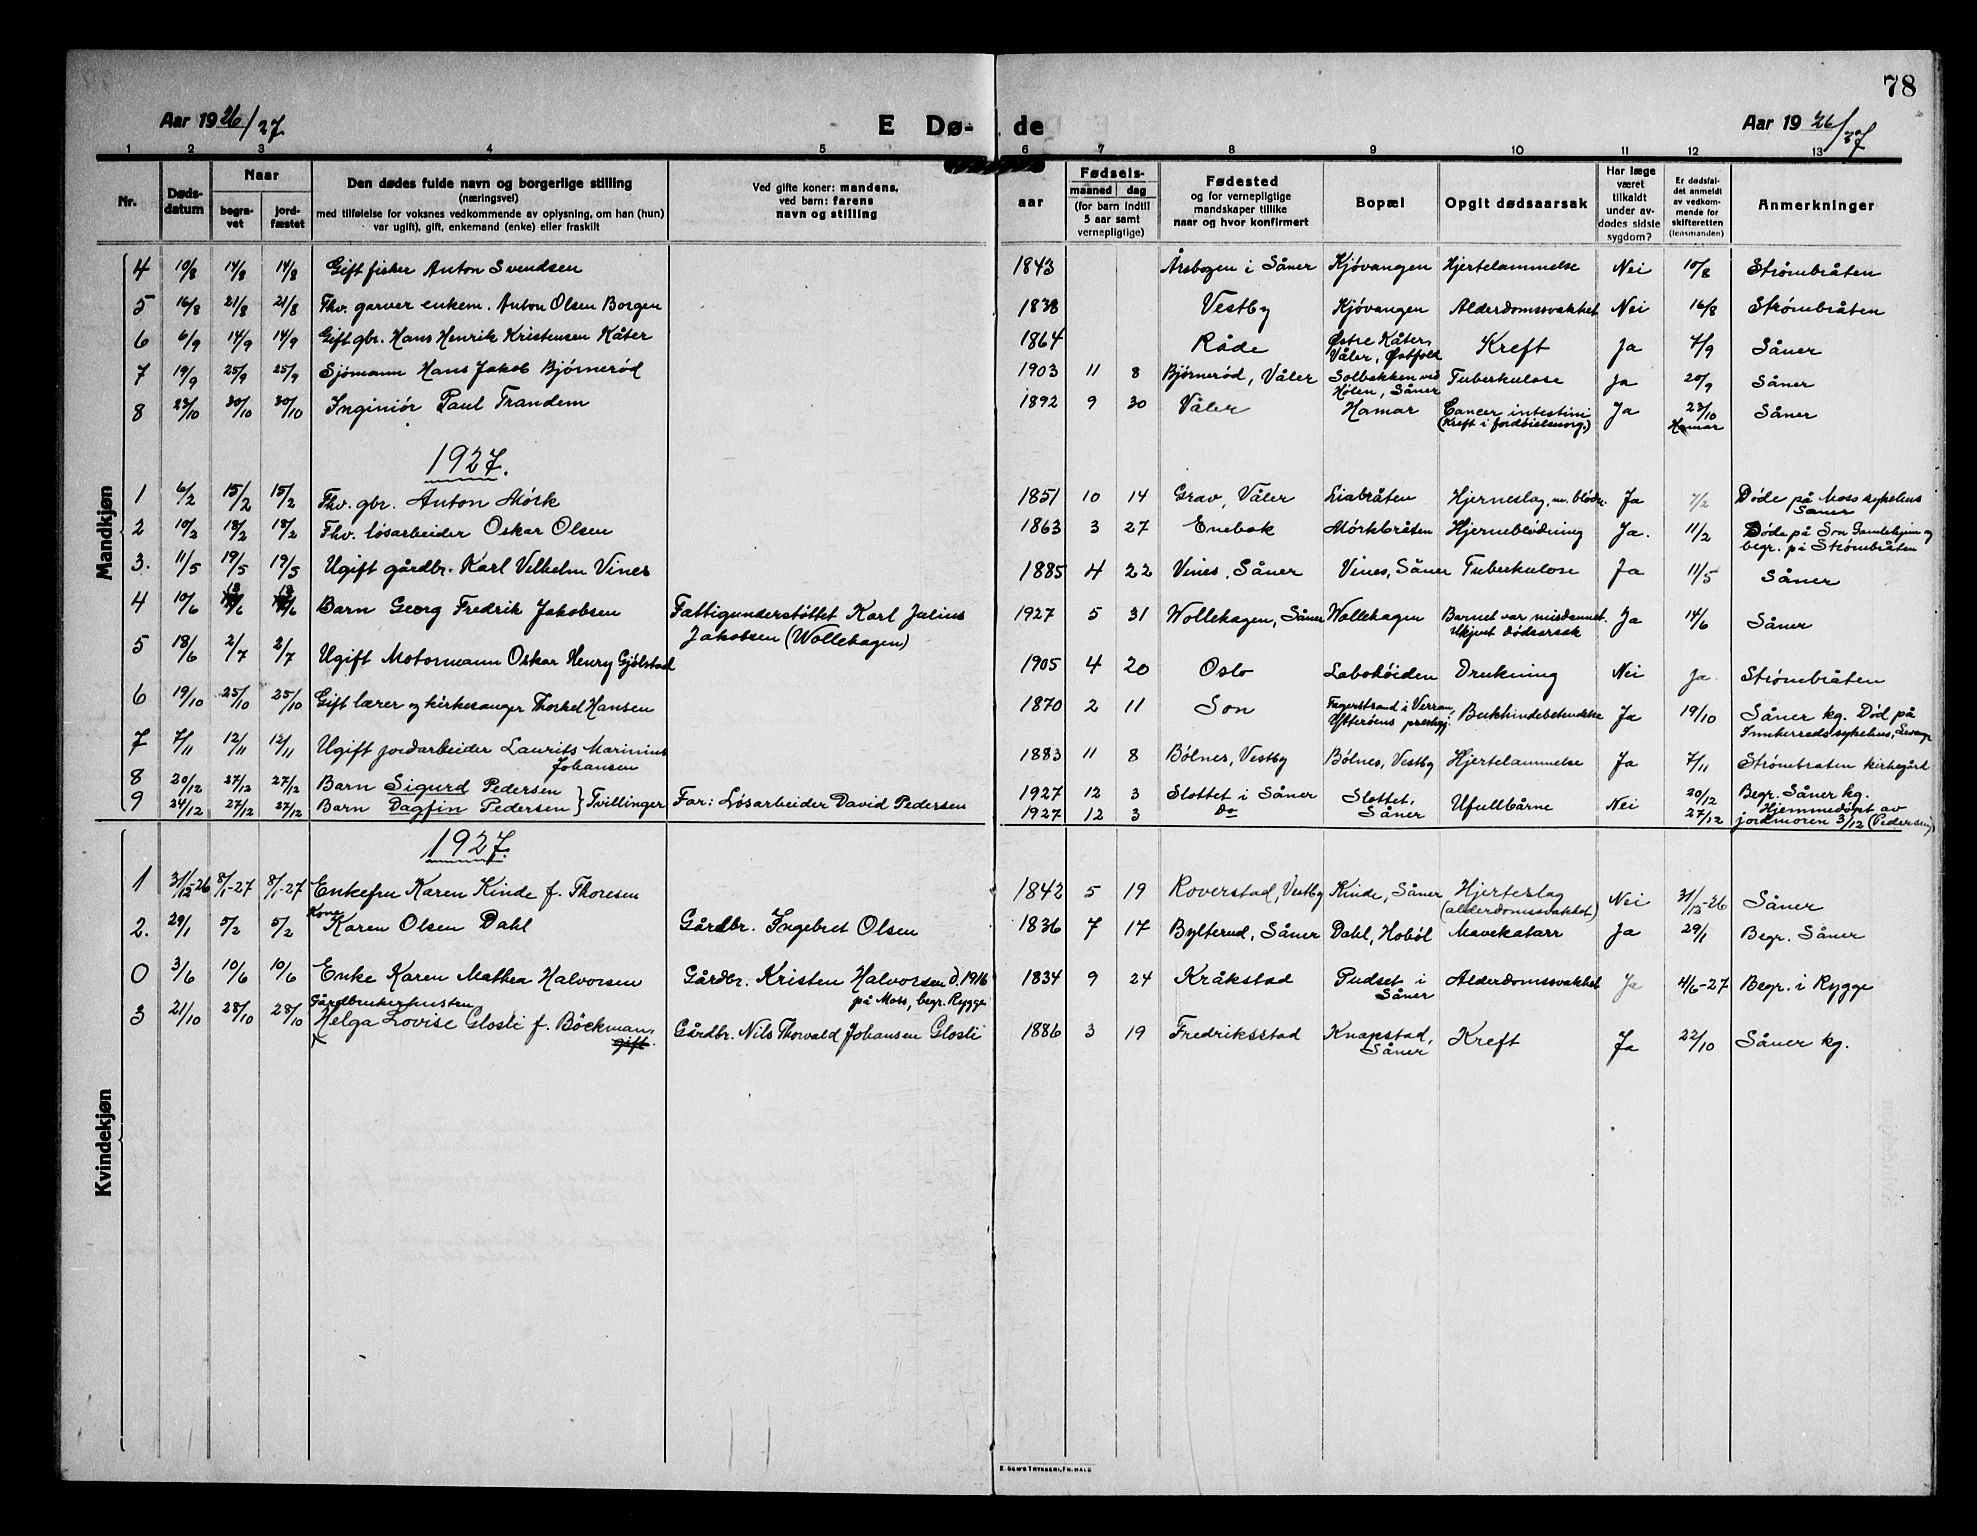 78
Aar 1926/27
E Dø-
de
Aar 1926/27
1 2 3 4 5 6 7 8 9 10 11 12 13
Nr.
Døds-
datum
Naar
begra-
vet
jord-
fæstet
Den dødes fulde navn og borgerlige stilling
(næringsvei)
med tilføielse for voksnes vedkommende av oplysning, om han (hun)
var ugift), gift, enkemand (enke) eller fraskilt
Ved gifte koner: mandens,
ved barn: farens
navn og stilling
aar
Fødsels-
maaned dag
(for barn indtil
5 aar samt
vernepligtige)
Fødested
og for vernepligtige
mandskaper tillike
naar og hvor konfirmert
Bopæl
Opgit dødsaarsak
Har læge
været
tilkaldt
under av-
dødes sidste
sygdom?
Er dødsfal-
det anmeldt
av vedkom-
mende for
skifteretten
(lensmanden)
Anmerkninger
Mandkjøn
4 10/8 14/8 14/8 Gift fisker Anton Svendsen 1843 Årsbogen i Såner Kjøvangen Hjertelammelse Nei 10/8 Strømbråten
5 16/8 21/8 21/8 Fhv. garver enkem. Anton Olsen Borgen 1838 Vestby Kjøvangen Alderdomssvakhet Nei 16/8 Strømbråten
6 6/9 14/9 14/9 Gift gbr. Hans Henrik Kristensen Kåter 1864 Råde Østre Kåter, Våler, Østfold Kreft Ja 7/9 Såner
7 19/9 25/9 25/9 Sjømann Hans Jakob Bjørnerød 1903 11 8 Bjørnerød, Våler Solbakken ved Hølen, Såner Tuberkulose Ja 20/9 Såner
8 23/10 30/10 30/10 Inginiør Paul Trandem 1892 9 30 Våler Hamar Cancer intestini (Kreft i fordøielsesorg.) Ja 23/10 Hamar Såner
1927.
1 6/2 15/2 15/2 Fhv. gbr. Anton Mørk 1851 10 14 Grav, Våler Liabråten Hjerneslag, m. blødn. Ja 7/2 Døde på Moss sykehus Såner
2 10/2 18/2 18/2 Fhv. løsarbeider Oskar Olsen 1863 3 27 Enebak Mørkbråten Hjerneblødning Ja. 11/2 Døde på Son Gamlehjem og begr. på Strømbråten
3. 11/5 19/5 19/5 Ugift gårdbr. Karl Vilhelm Vines 1885 4 22 Vines, Såner Vines, Såner Tuberkulose Ja 11/5 Såner
4 10/6 18/6 18/6 Barn Georg Fredrik Jakobsen Fattigunderstøttet Karl Julius Jakobsen (Wollehagen) 1927 5 31 Wollehagen, Såner Wollehagen Barnet var misdannet. Ukjent dødsårsak Ja 14/6 Såner
5 18/6 2/7 2/7 Ugift Motormann Oskar Henry Gjølstad 1905 4 20 Oslo Labohøiden Drukning Nei Ja Strømbråten
6 19/10 25/10 25/10 Gift lærer og kirkesanger Thorkel Hansen 1870 2 11 Son Fagerstrand i Verran, Ytterøens prestegj. Bukhindebetendelse Ja 19/10 Såner kg. Død på Innherreds sykehus, Levanger
7 7/11 12/11 12/11 Ugift jordarbeider Laurits Marinius Johansen 1883 11 8 Bølnes, Vestby Bølnes, Vestby Hjertelammelse Ja 7/11 Strømbraten kirkegård
8 20/12 27/12 27/12 Barn Sigurd Pedersen 1927 12 3 Slottet i Såner Slottet, Såner Ufullbårne Nei 20/12 Begr. Såner kg.
9 24/12 27/12 27/12 Barn Dagfin Pedersen } Tvillinger Far: Løsarbeider David Pedersen 1927 12 3 Do 27/12 Hjemmedøpt av jordmoren 3/12 (Pedersen)
Kvindekjøn
1927.
1 31/12-26 8/1-27 8/1-27 Enkefru Karen Kinde f. Thoresen 1842 5 19 Roverstad, Vestby Kinde, Såner Hjerteslag (alderdomssvakhet) Nei 31/12-26 Såner
2. 29/1 5/2 5/2 Kone Karen Olsen Dahl Gårdbr. Ingebret Olsen 1836 7 17 Bylterud, Såner Dahl, Hobøl Mavekatarr Ja 29/1 Begr. Såner
0 3/6 10/6 10/6 Enke Karen Mathea Halvorsen Gårdbr. Kristen Halvorsen d. 1916 på Moss, begr. Rygge 1834 9 24 Kråkstad Pudset i Såner Alderdomssvakhet Ja 4/6-27 Begr. i Rygge
3 21/10 28/10 28/10 Gårdbrukerhustru Helga Lovise Glosli f. Bøckman, gift. Gårdbr. Nils Thorvald Johansen Glosli 1886 3 19 Fredriksstad Knapstad, Såner Kreft Ja 22/10 Såner kg.